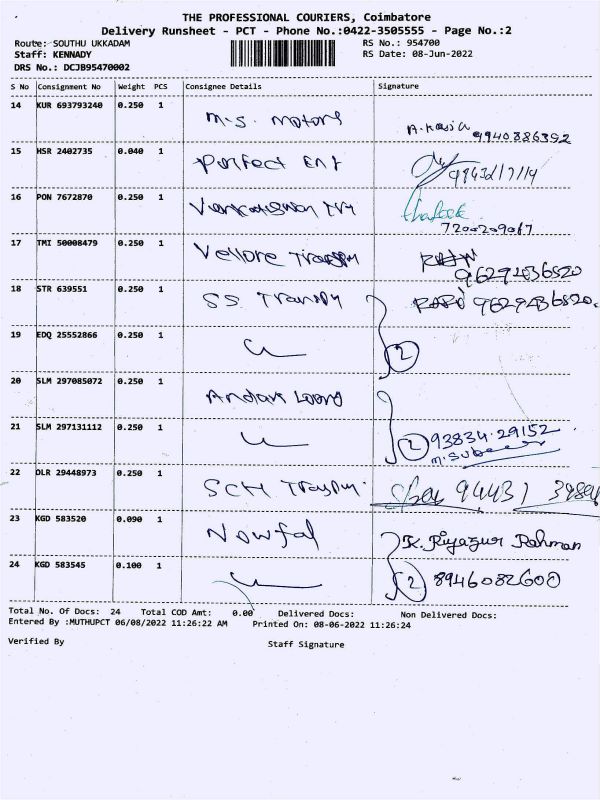 THE PROFESSIONAL COURIERS, Coimbatore
Delivery Runsheet - PCT - Phone No.:0422-3505555 - Page No.:2
Route: SOUTHU UKKADAM RS No.: 954700
Staff: KENNADY RS Date: 08-Jun-2022
DRS No.: DCJB95470002
S No Consignment No Weight PCS Consignee Details Signature
14 KUR 693793240 0.250 1 M.S. Motors 9940886392
15 HSR 2402735 0.040 1 Perfect Ent
16 PON 7672870 0.250 1 7200209017
17 TMI 50008479 0.250 1 Vellore 9629236820
18 STR 639551 0.250 1 SS 9629236820.
19 EDQ 25552866 0.250 1 2
20 SLM 297085072 0.250 1
21 SLM 297131112 0.250 1 2 93834.29152
22 DLR 29448973 0.250 1 SCH 94431
23 KGD 583520 0.090 1 Nowfal K. Riyazur Rahman
24 KGD 583545 0.100 1 2 8946082600
Total No. Of Docs: 24 Total COD Amt: 0.00 Delivered Docs: Non Delivered Docs:
Entered By :MUTHUPCT 06/08/2022 11:26:22 AM Printed On: 08-06-2022 11:26:24
Verified By Staff Signature